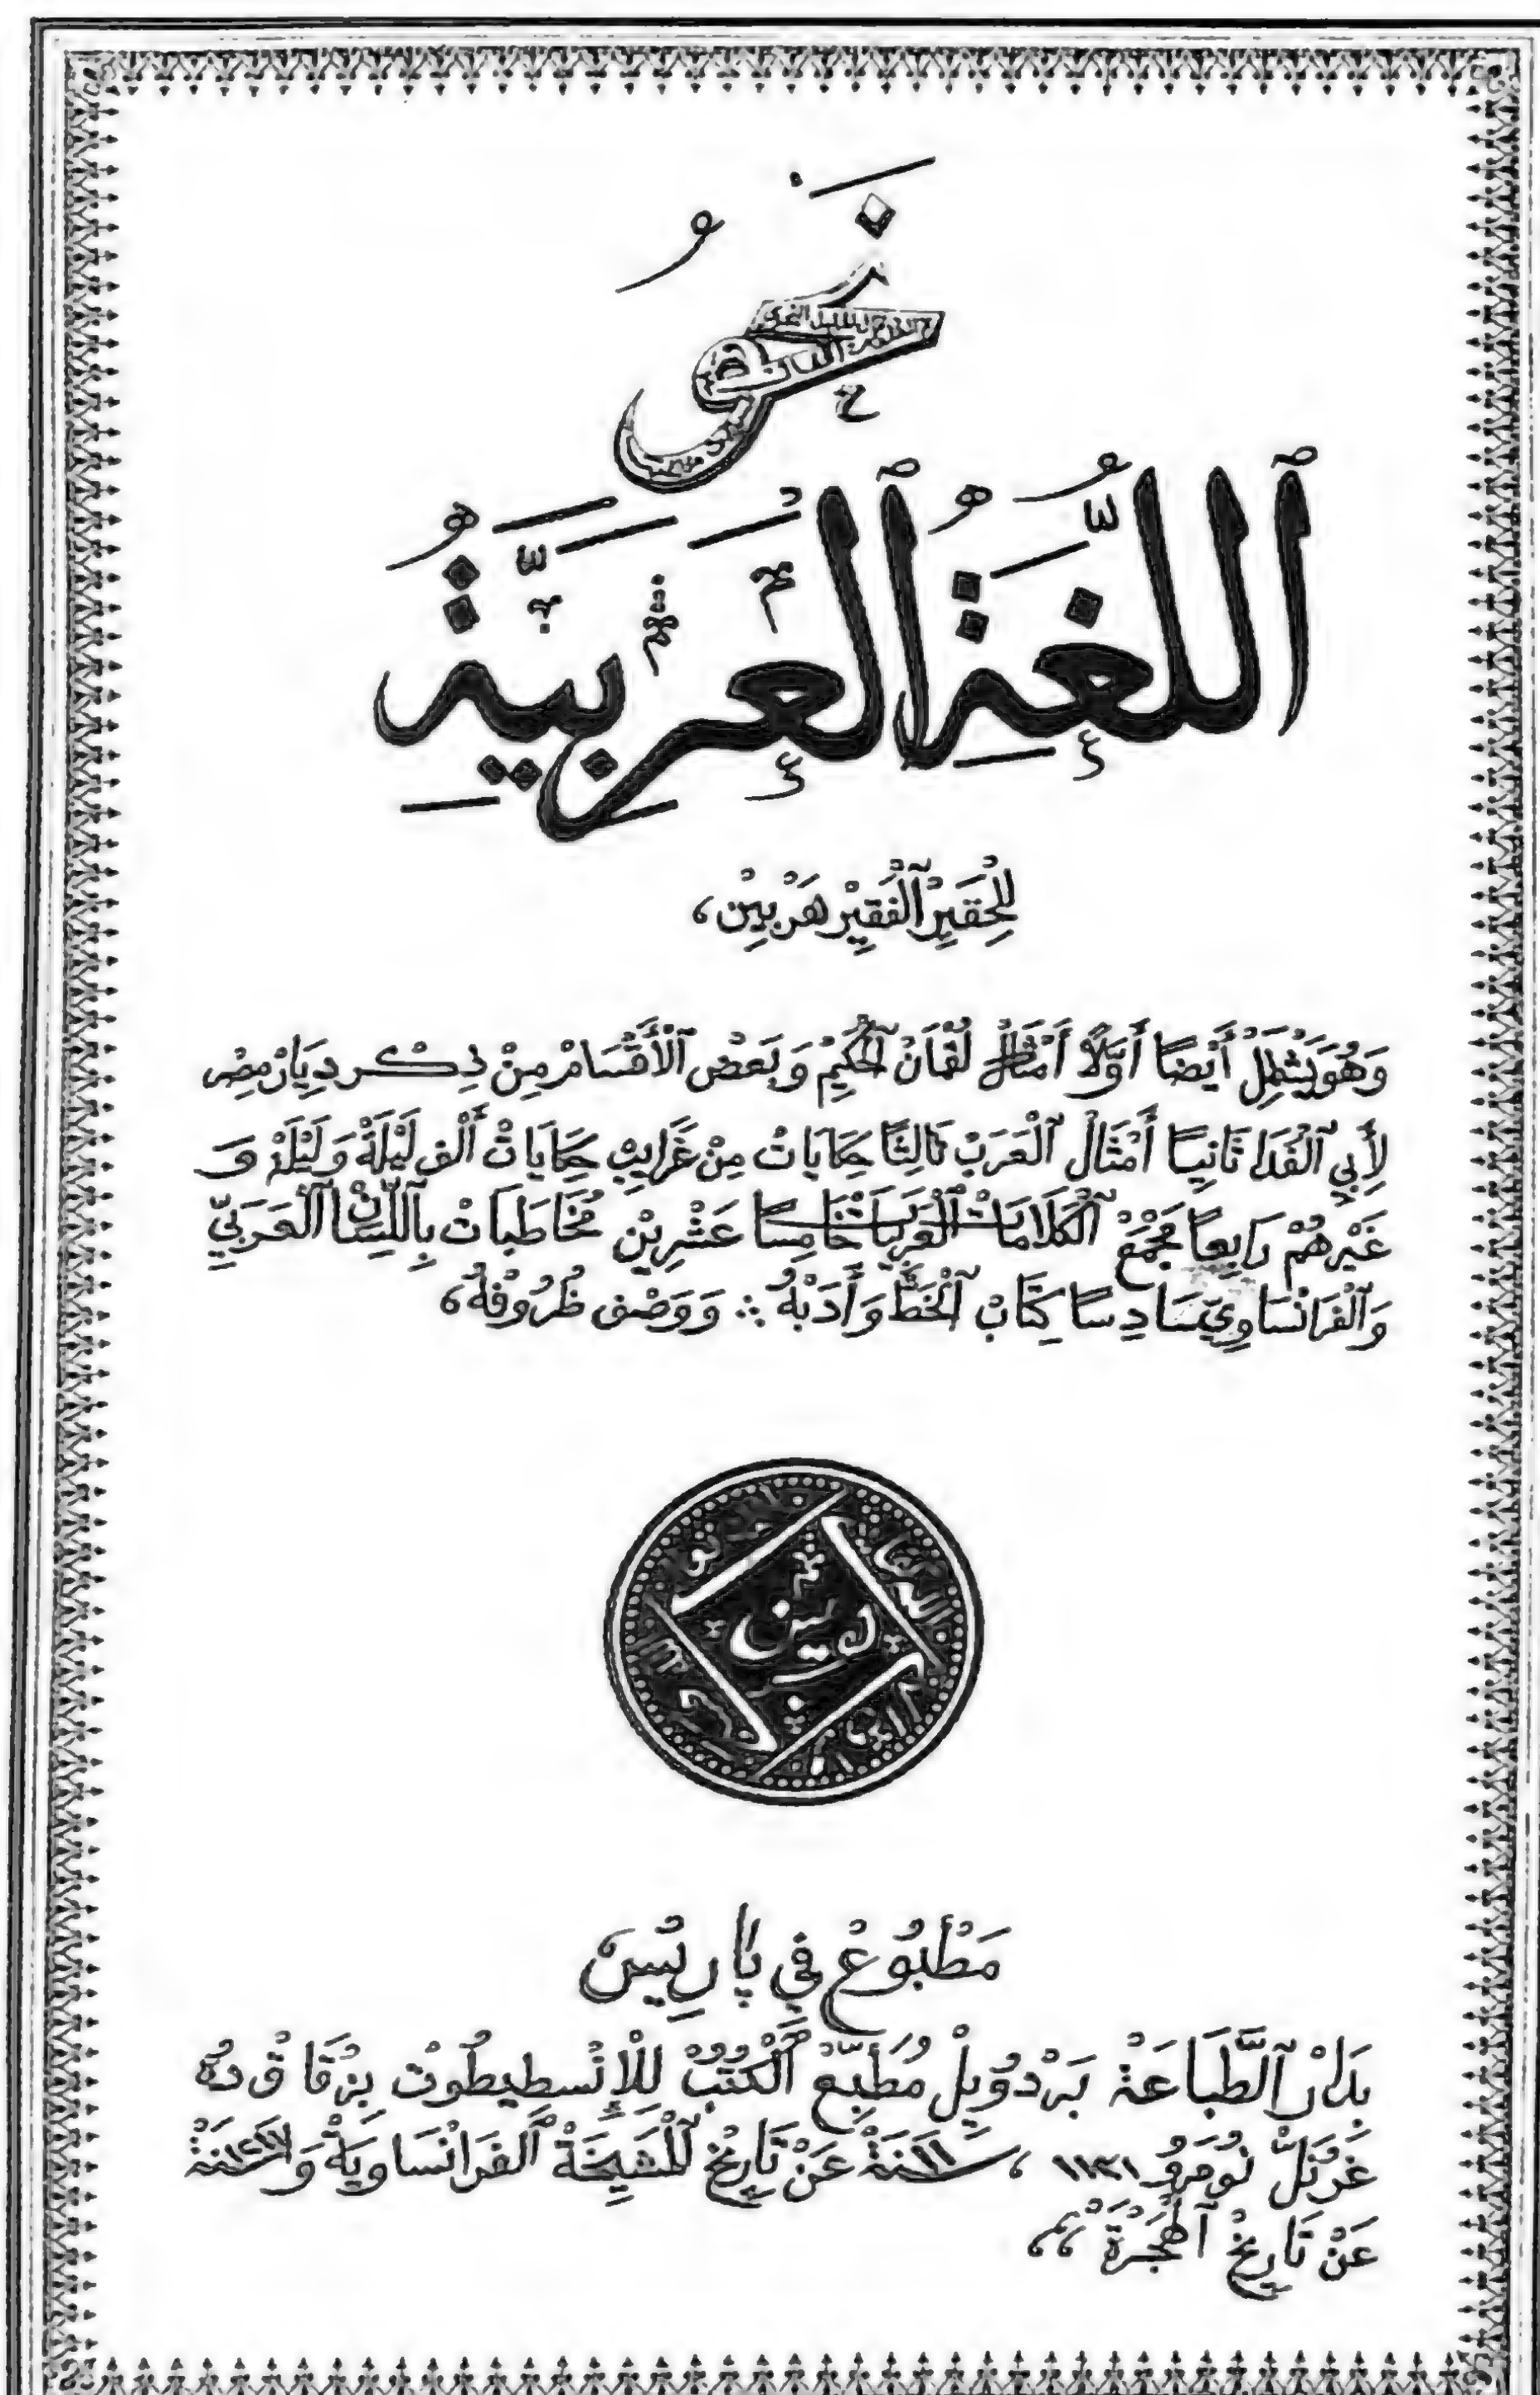 نَحْوُ
ٱللُّغَةِ ٱلْعَرَبِيَّةِ
لِلْحَقِيرِ ٱلْفَقِيْرِ هَرْبِيْنْ،
وَهُوَ يَشْمَلْ أَيْضًا أَوَّلًا أَمْثَالْ لُقْمَانْ ٱلْحَكِيمْ وَبَعْضْ ٱلْأَقْسَامْ مِنْ ذِكْر دِيَارْ مِصْر
لِأَبِي ٱلْفُدَا ثَانِيًا أَمْثَالْ ٱلْعَرَبْ ثَالِثًا حِكَايَاتْ مِنْ غَرَايِبْ حِكَايَاتْ أَلْف لَيْلَةْ وَلَيْلَةْ وَ
غَيْرهُمْ رَابِعًا مَجْمَعْ ٱلْكَلَامَاتْ ٱلْغَرِيبَاتْ خَامِسًا عَشْرِيْن مُخَاطَبَاتْ بِٱللِّسَانْ ٱلْعَرَبِيّ
وَٱلْفَرَانْسَاوِيّ سَادِسًا كِتَابْ ٱلْخَطّ وَأَدَبْهُ ؞ وَوَصْف ظُرُوْفهُ،
مَطْبُوعْ فِي پَارِيسْ
بِدَارْ ٱلطَّبَاعَةْ بَرْدُوِيلْ مُطَبِّعْ ٱلْكُتُبْ لِلْإِنْسطِيطُوتْ بِزْقَاقْ دُهْ
غَرُنَلّ نُومَرُو ١١٣١ ، سَنَةْ ١١ عَنْ تَارِيخْ ٱلْمَشِيخَةْ ٱلْفَرَانْسَاوِيَةْ وَسَنَةْ
عَنْ تَارِيخْ ٱلْهِجْرَةْ ،،